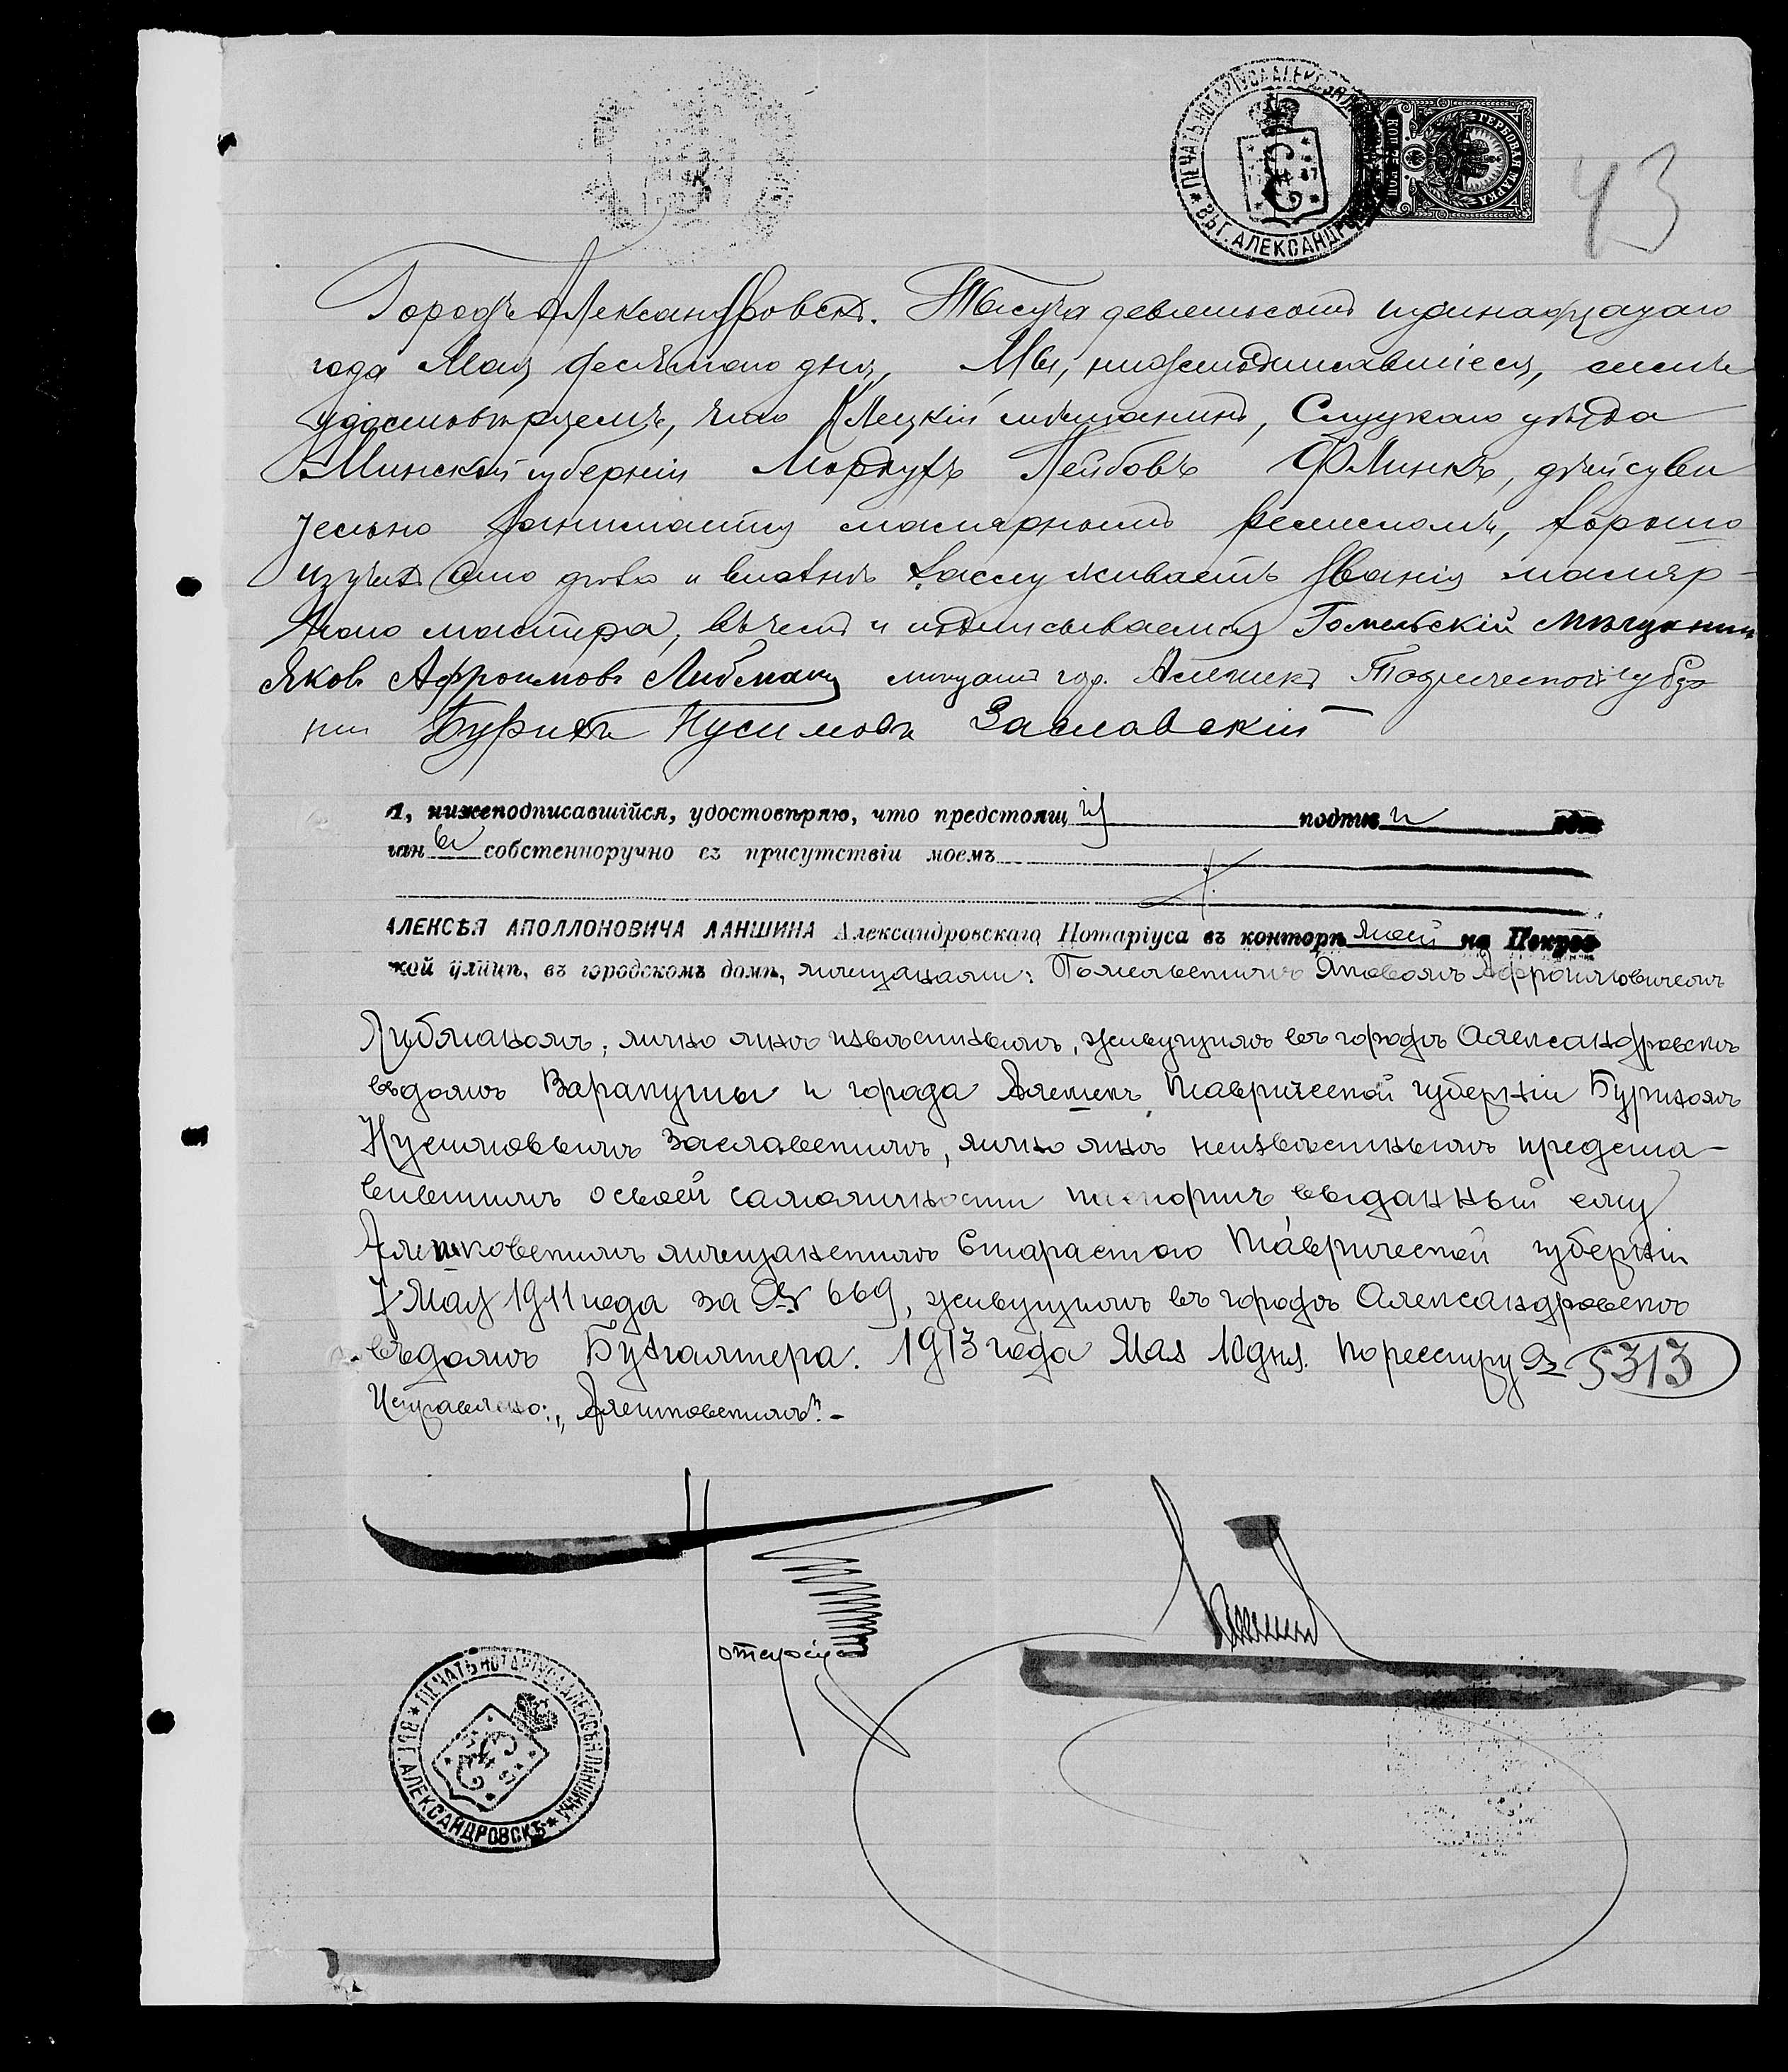 ПЕЧАТЬ НОТАРІУСА АЛЕКСѢЯ
ВЪ Г. АЛЕКСАНДРОВСКѢ
ГЕРБОВАЯ МАРКА
43
Городъ Александровскъ. Тысяча девятьсотъ тринадцатаго
года Мая десятаго дня, Мы, нижеподписавшіеся, симъ
удостовѣряемъ, что Клецкій мѣщанинъ, Слуцкаго уѣзда
Минской губерніи Мордухъ Лейбовъ Флинкъ, дѣйстви
тельно занимается малярнымъ ремесломъ, хорошо
изучилъ это дѣло и вполнѣ заслуживаетъ званія маляр-
наго мастера, въ чемъ и подписываемся Гомельскій мѣщанин
Яковъ Афроимовъ Либманъ мѣщанинъ гор. Алешекъ Таврической губер
ніи Бурихъ Нусимовъ Заславскій
Я, нижеподписавшійся, удостовѣряю, что предстоящія подписи сдѣ
ланы собственноручно въ присутствіи моемъ
АЛЕКСѢЯ АПОЛЛОНОВИЧА ЛАНШИНА Александровскаго Нотаріуса въ конторѣ моей на Покров
ской улицѣ, въ городскомъ домѣ, мѣщанами: Гомельскимъ Яковомъ Афроимовичемъ
Либманомъ, лично мнѣ извѣстнымъ, живущимъ въ городѣ Александровскѣ
въ домѣ Варакуты и города Алешекъ, Таврической губерніи Бурихомъ
Нусимовымъ Заславскимъ, лично мнѣ неизвѣстнымъ предста-
вившимъ о своей самоличности паспортъ, выданный ему
Алешковскимъ мѣщанскимъ Старостою Таврической губерніи
7 Мая 1911 года за № 669, живущимъ въ городѣ Александровскѣ
въ домѣ Бухгалтера. 1913 года Мая 10 дня. По реестру № 5313
Исправлено: „Алешковскимъ". –
Нотаріусъ
Ланшинъ
ПЕЧАТЬ НОТАРІУСА АЛЕКСѢЯ ЛАНШИНА
ВЪ Г. АЛЕКСАНДРОВСКѢ